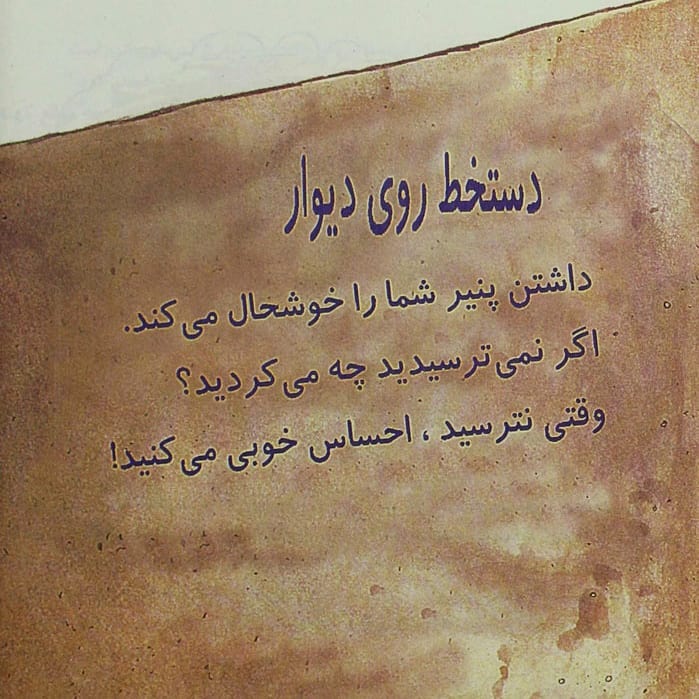 دستخط روی دیوار
داشتن پنیر شما را خوشحال می‌کند.
اگر نمی‌ترسیدید چه می‌کردید؟
وقتی نترسید، احساس خوبی می‌کنید!